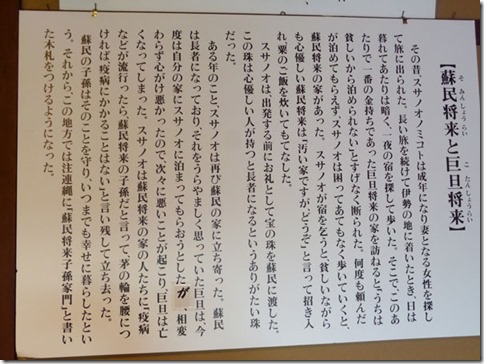 そみんしょうらい こたんしょうらい
【蘇民将来と巨旦将来】
その昔、スサノオノミコトは成年になり妻となる女性を探し
て旅に出られた。長い旅を続けて伊勢の地に着いたとき、日は
暮れてあたりは暗く、一夜の宿を探して歩いた。そこで、このあ
たりで一番の金持ちであった巨旦将来の家を訪ねると、「うちは
貧しいから泊められない」とすげなく断られた。何度も頼んだ
が泊めてもらえず、スサノオは困ってあてもなく歩いていくと、
蘇民将来の家があった。スサノオが宿を乞うと、貧しいながら
も心優しい蘇民将来は、「汚い家ですが、どうぞ」と言って招き入
れ粟のご飯を炊いてもてなした。
スサノオは、出発する前にお礼として宝の珠を蘇民に渡した。
この珠は心優しい人が持つと長者になるというありがたい珠
だった。
ある年のこと、スサノオは再び蘇民の家に立ち寄った。蘇民
は長者になっており、それをうらやましく思っていた巨旦は、今
度は自分の家にスサノオに泊まってもらおうとしたが、相変
わらず心がけ悪かったので、次々に悪いことが起こり、巨旦は亡
くなってしまった。スサノオは蘇民将来の家の人たちに、「疫病
などが流行ったら、蘇民将来の子孫だと言って、茅の輪を腰につ
ければ疫病にかかることはない」と言い残して立ち去った。
蘇民の子孫はそのことを守り、いつまでも幸せに暮らしたとい
う。それから、この地方では注連縄に、「蘇民将来子孫家門」と書い
た木札をつけるようになった。